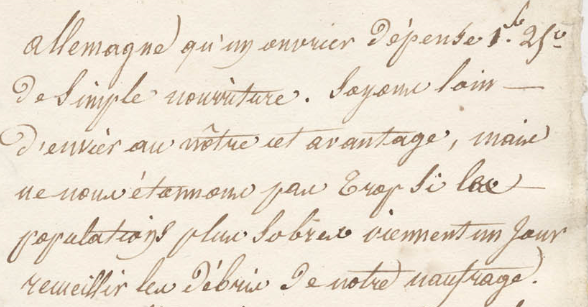 allemagne) qu'un ouvrier dépense 1f. 25c
de simple nourriture. Soyons loin
d'envier au nôtre cet avantage, mais
ne nous étonnons pas trop si les
populations plus sobres viennent un jour
recueillir les débris de notre naufrage.